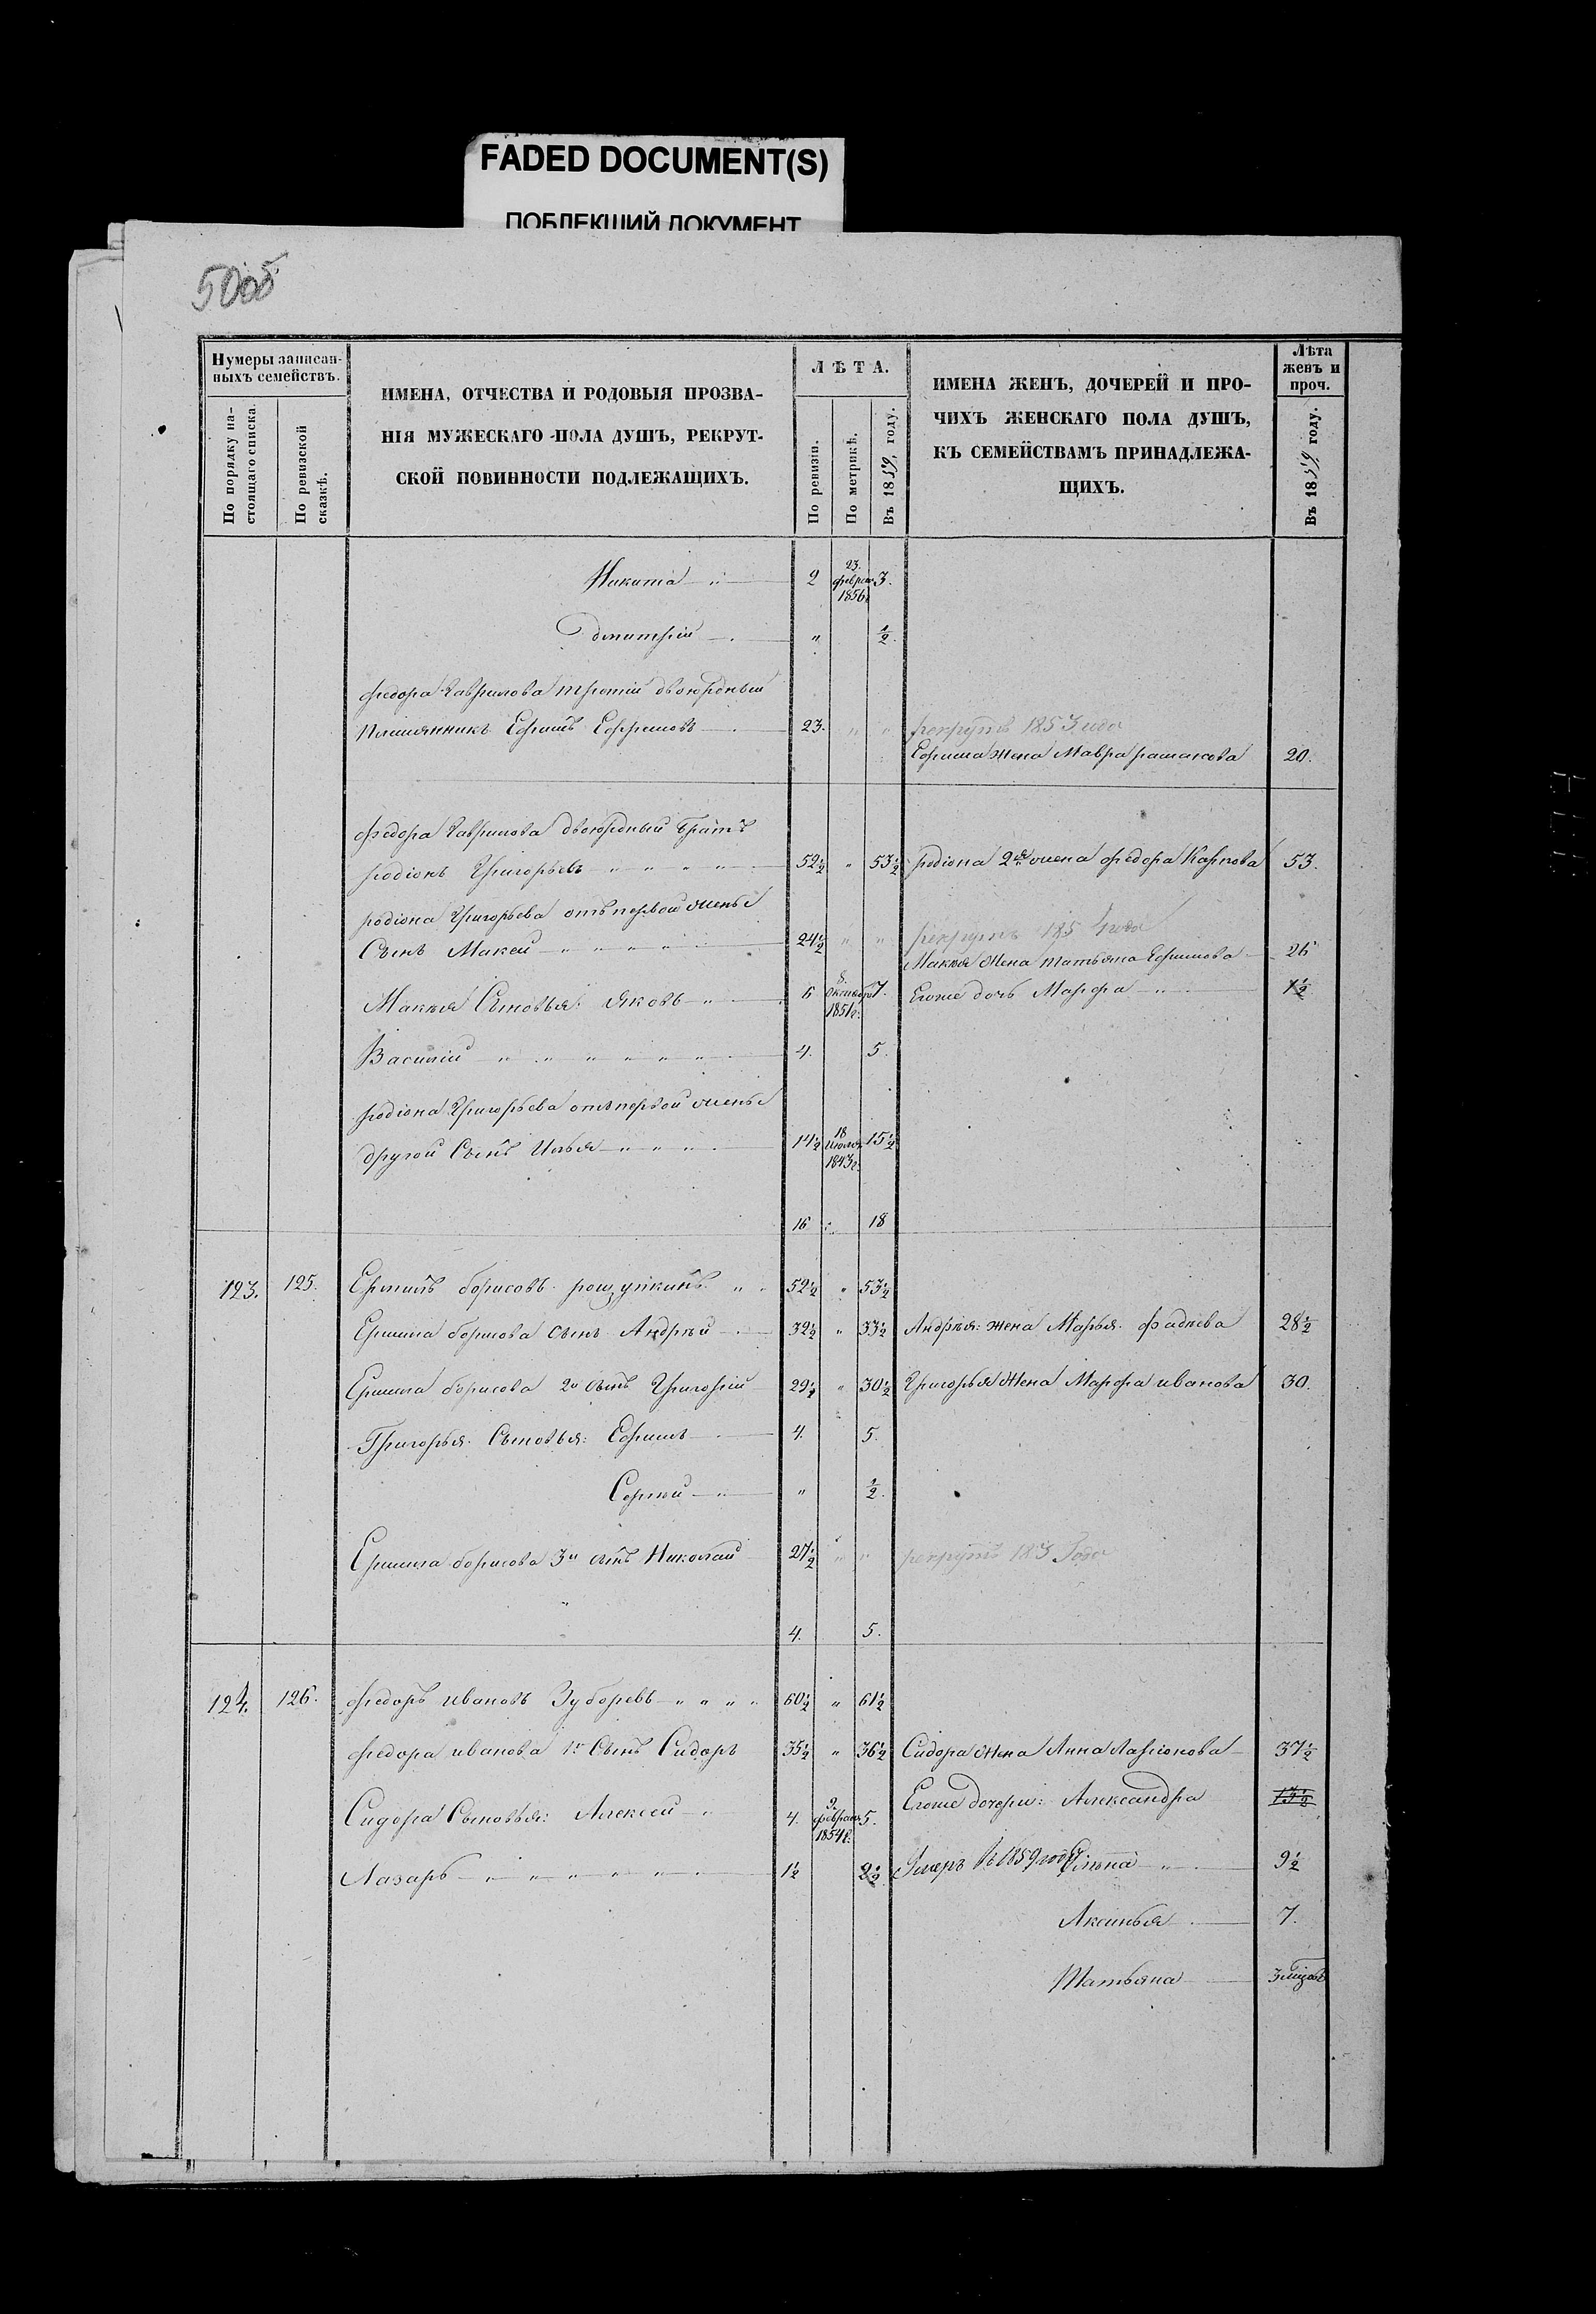 FADED DOCUMENT(S)
ПОБЛЕКШИЙ ДОКУМЕНТ
50об
Нумеры записан-
ныхъ семействъ.
По порядку на-
стоящаго списка.
По ревизской
сказкѣ.
ИМЕНА, ОТЧЕСТВА И РОДОВЫЯ ПРОЗВА-
НІЯ МУЖЕСКАГО ПОЛА ДУШЪ, РЕКРУТ-
СКОЙ ПОВИННОСТИ ПОДЛЕЖАЩИХЪ.
ЛѢТА.
По ревизіи.
По метрикѣ.
Въ 1859 году.
ИМЕНА ЖЕНЪ, ДОЧЕРЕЙ И ПРО-
ЧИХЪ ЖЕНСКАГО ПОЛА ДУШЪ,
КЪ СЕМЕЙСТВАМЪ ПРИНАДЛЕЖА-
ЩИХЪ.
Лѣта
женъ и
проч.
Въ 1859 году.
Никита " 2 23. феврал. 1856г 3.
Дмитрій " ½.
Федора Гаврилова третій двоюрдный
Племянникъ Ефимъ Ефремовъ 23. " " рекрутъ 1853 года
Ефима жена Мавра 20.
Федора Гаврилова двоюрдный братъ
родіонъ Григорьевъ " " " " 52½ " 53½ родіона 2я жена федора Карпова 53.
родіона Григорьева отъ первой жены
Сынъ Макей " " " " 24½ " " рекрутъ 185 года
Макея Жена татьяна Ефимова 26
Макея Сыновья: Яковъ " 6 8. Октября 1851г. 7. Егоже дочь Марфа " 1½
Василій " " " " " " 4. 5.
родіона Григорьева отъ первой жены
другой Сынъ Илья " " " 14½ 18 Июля 1843г. 15½
16 18
123. 125. Ермилъ борисовъ рощупкинъ " " 52½ " 53½
Ермила борисова сынъ Андрѣй 32½ " 33½ Андрѣя: жена Марья фадѣева 28½
Ермила борисова 2й сынъ Григорій 29½ " 30½ Григорья Жена Марфа иванова 30.
Григорья Сыновья: Ефимъ 4. 5.
Сергѣй " " ½.
Ермила борисова 3й сынъ Николай 27½ " " рекрутъ 183 Года
4. 5.
124. 126. Федоръ ивановъ Зуборевъ " " " " 60½ " 61½
Федора иванова 1й Сынъ Сидоръ 35½ " 36½ Сидора жена Анна Ларіонова 37½
Сидора Сыновья: Алексей " 4. 9. феврал. 1854г. 5. Егоже дочери: Александра 13½
Лазарь " " " " " " 1½ 2½ Умеръ въ 1859 году " 9½
Аксинья 7.
Татьяна 3 мцовъ